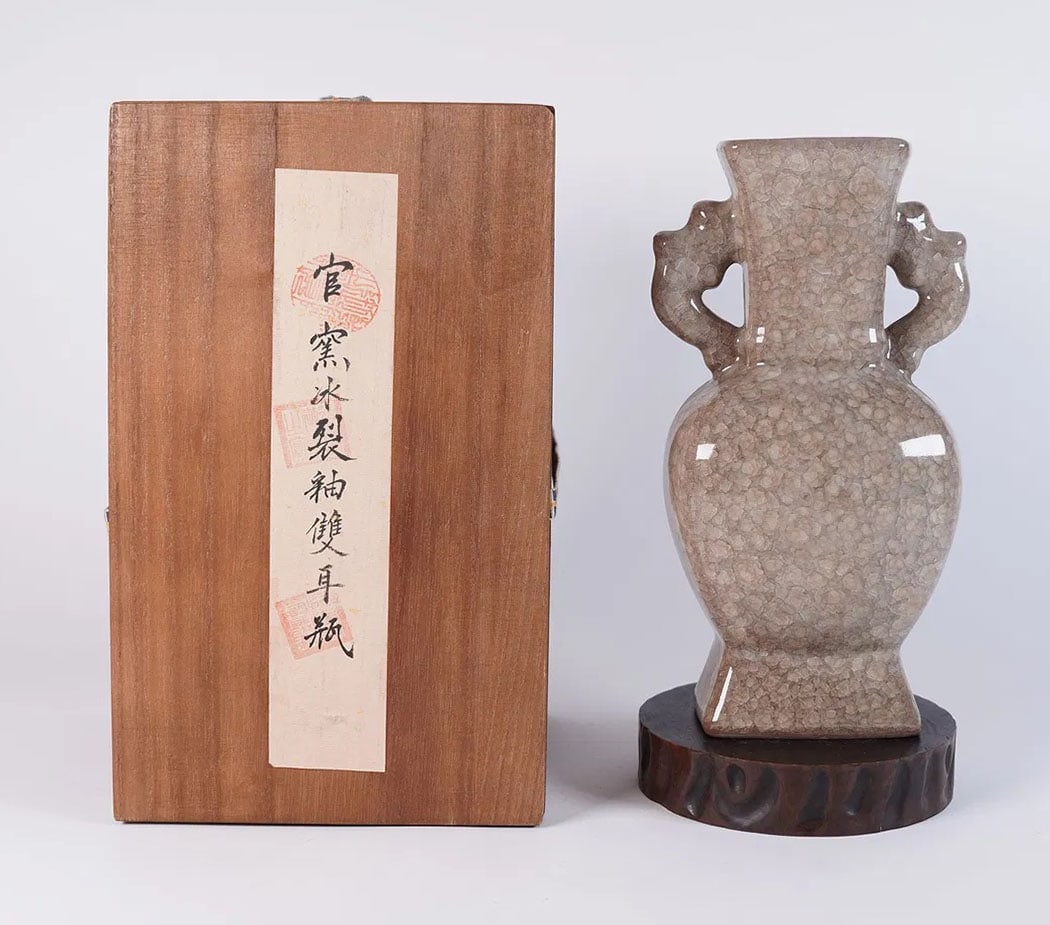 官窯冰裂釉雙耳瓶